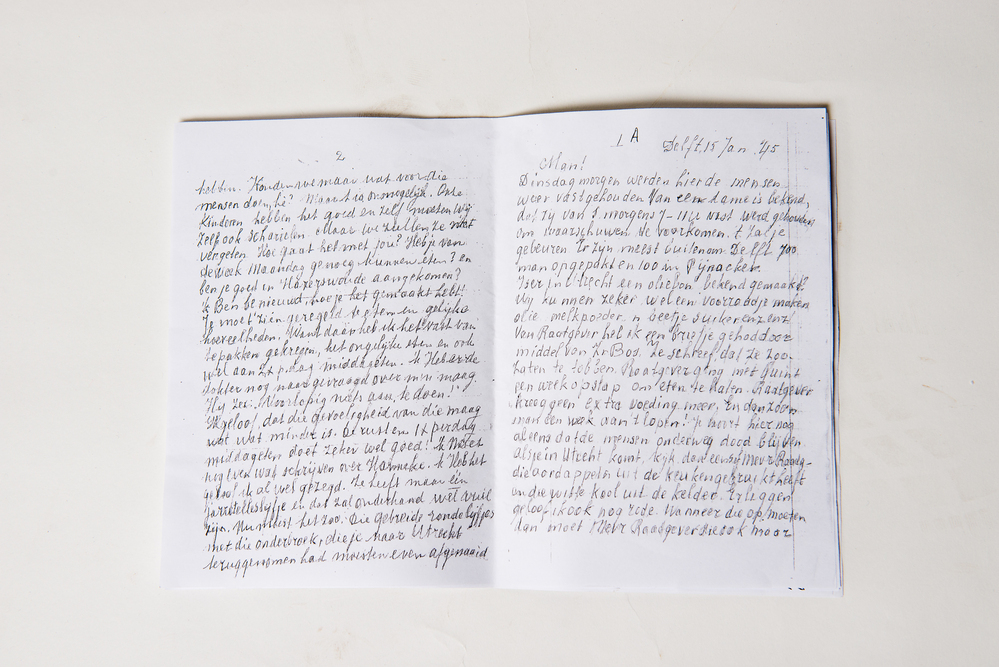 2
hebben. Konden we maar wat voor die
mensen doen, hè? Maar t is onmogelijk. Onze
kinderen hebben het goed en zelf moeten wij
zelf ook scharrelen. Maar we zullen ze niet
vergeten. Hoe gaat het met jou? Heb je van
de week Maandag genoeg kunnen eten? en
ben je goed in Hazerswoude aangekomen?
'k Ben benieuwd, hoe je het gemaakt hebt!
Je moet zien geregeld te eten en gelijke
hoeveelheden. Want daar heb ik het vast van
te pakken gekregen, het ongelijke eten en ook
wel aan 2x p. dag middageten. 'k Heb arde
dokter nog naar gevraagd over mijn maag
Hij zei: Voorlopig niets aan te doen!
'k geloof, dat die gevoeligheid van die maag
wat wat minder is. Berusten 1x per dag
middageten doet zeker wel goed! 'k Moet
nog even wat schrijven over Hanneke. 'k Heb het
geloof ik al wel gezegd. Ze heeft maar één
jarretellelijfje en dat zal onderhand wel vuil
zijn. Nu moest het zoo: Die gebreide rondo lijfjes
met die onderbroek, die je naar Utrecht
teruggenomen had moesten even afgenaaid
1 A
Delft, 15 Jan. '45
Man!
Dinsdagmorgen werden hier de mensen
weer vastgehouden. Van een dame is bekend,
dat zij van 's morgens 7-11 u vast werd gehouden
om waarschuwen te voorkomen. 't Zal je
gebeuren. Er zijn meest buitenom Delft 700
man opgepakt en 100 in Pijnacker.
Is er in Utrecht een oliebon bekend gemaakt?
Wij kunnen zeker wel een voorraadje maken
olie melkpoeder n beetje suiker enz enz!
Van Raatgever heb ik een briefje gehad door
middel van Zr Bos. Ze schreef, dat ze zoo
zaten te tobben. Raatgever ging met Quint
een week op stap om eten te halen. Raatgever
kreeg geen extra voeding meer. En dan zoo'n
man een week aan 't lopen! Je hoort hier nog
al eens dat de mensen onderweg dood blijven
als je in Utrecht komt, kijk dan eens bij Mevr Raatg-
die aardappelen uit de keuken gebruikt heeft
en die witte kool uit de kelder. Er leggen
geloof ik ook nog rode. Wanneer die op moeten
dan moet Mevr Raatgever die ook maar